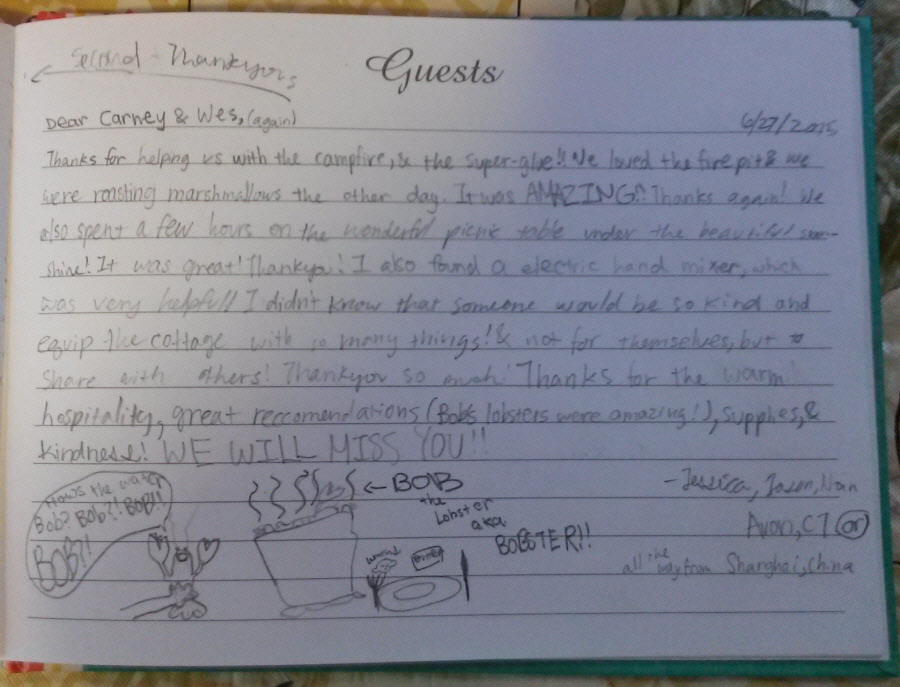 Second - Thankyous
Guests
Dear Carney & Wes, (again)
6/27/2015
Thanks for helping us with the campfire, & the super-glue!! We loved the fire pit & we
were roasting marshmallows the other day. It was AMAZING!! Thanks again! We
also spent a few hours on the wonderful picnic table under the beautiful sun-
shine! It was great! Thankyou! I also found a electric hand mixer, which
was very helpful! I didn't know that someone would be so kind and
equip the cottage with so many things! & not for themselves, but to
share with others! Thankyou so much! Thanks for the warm
hospitality, great reccomendations (Bob's lobsters were amazing!), supplies, &
kindness! WE WILL MISS YOU!!
Hows the water
Bob? Bob?! BOB!!
BOB?!
← BOB
the
Lobster
aka
BOBSTER!!
- Jessica, Jason, Nan
Avon, CT (or)
all the way from Shanghai, China